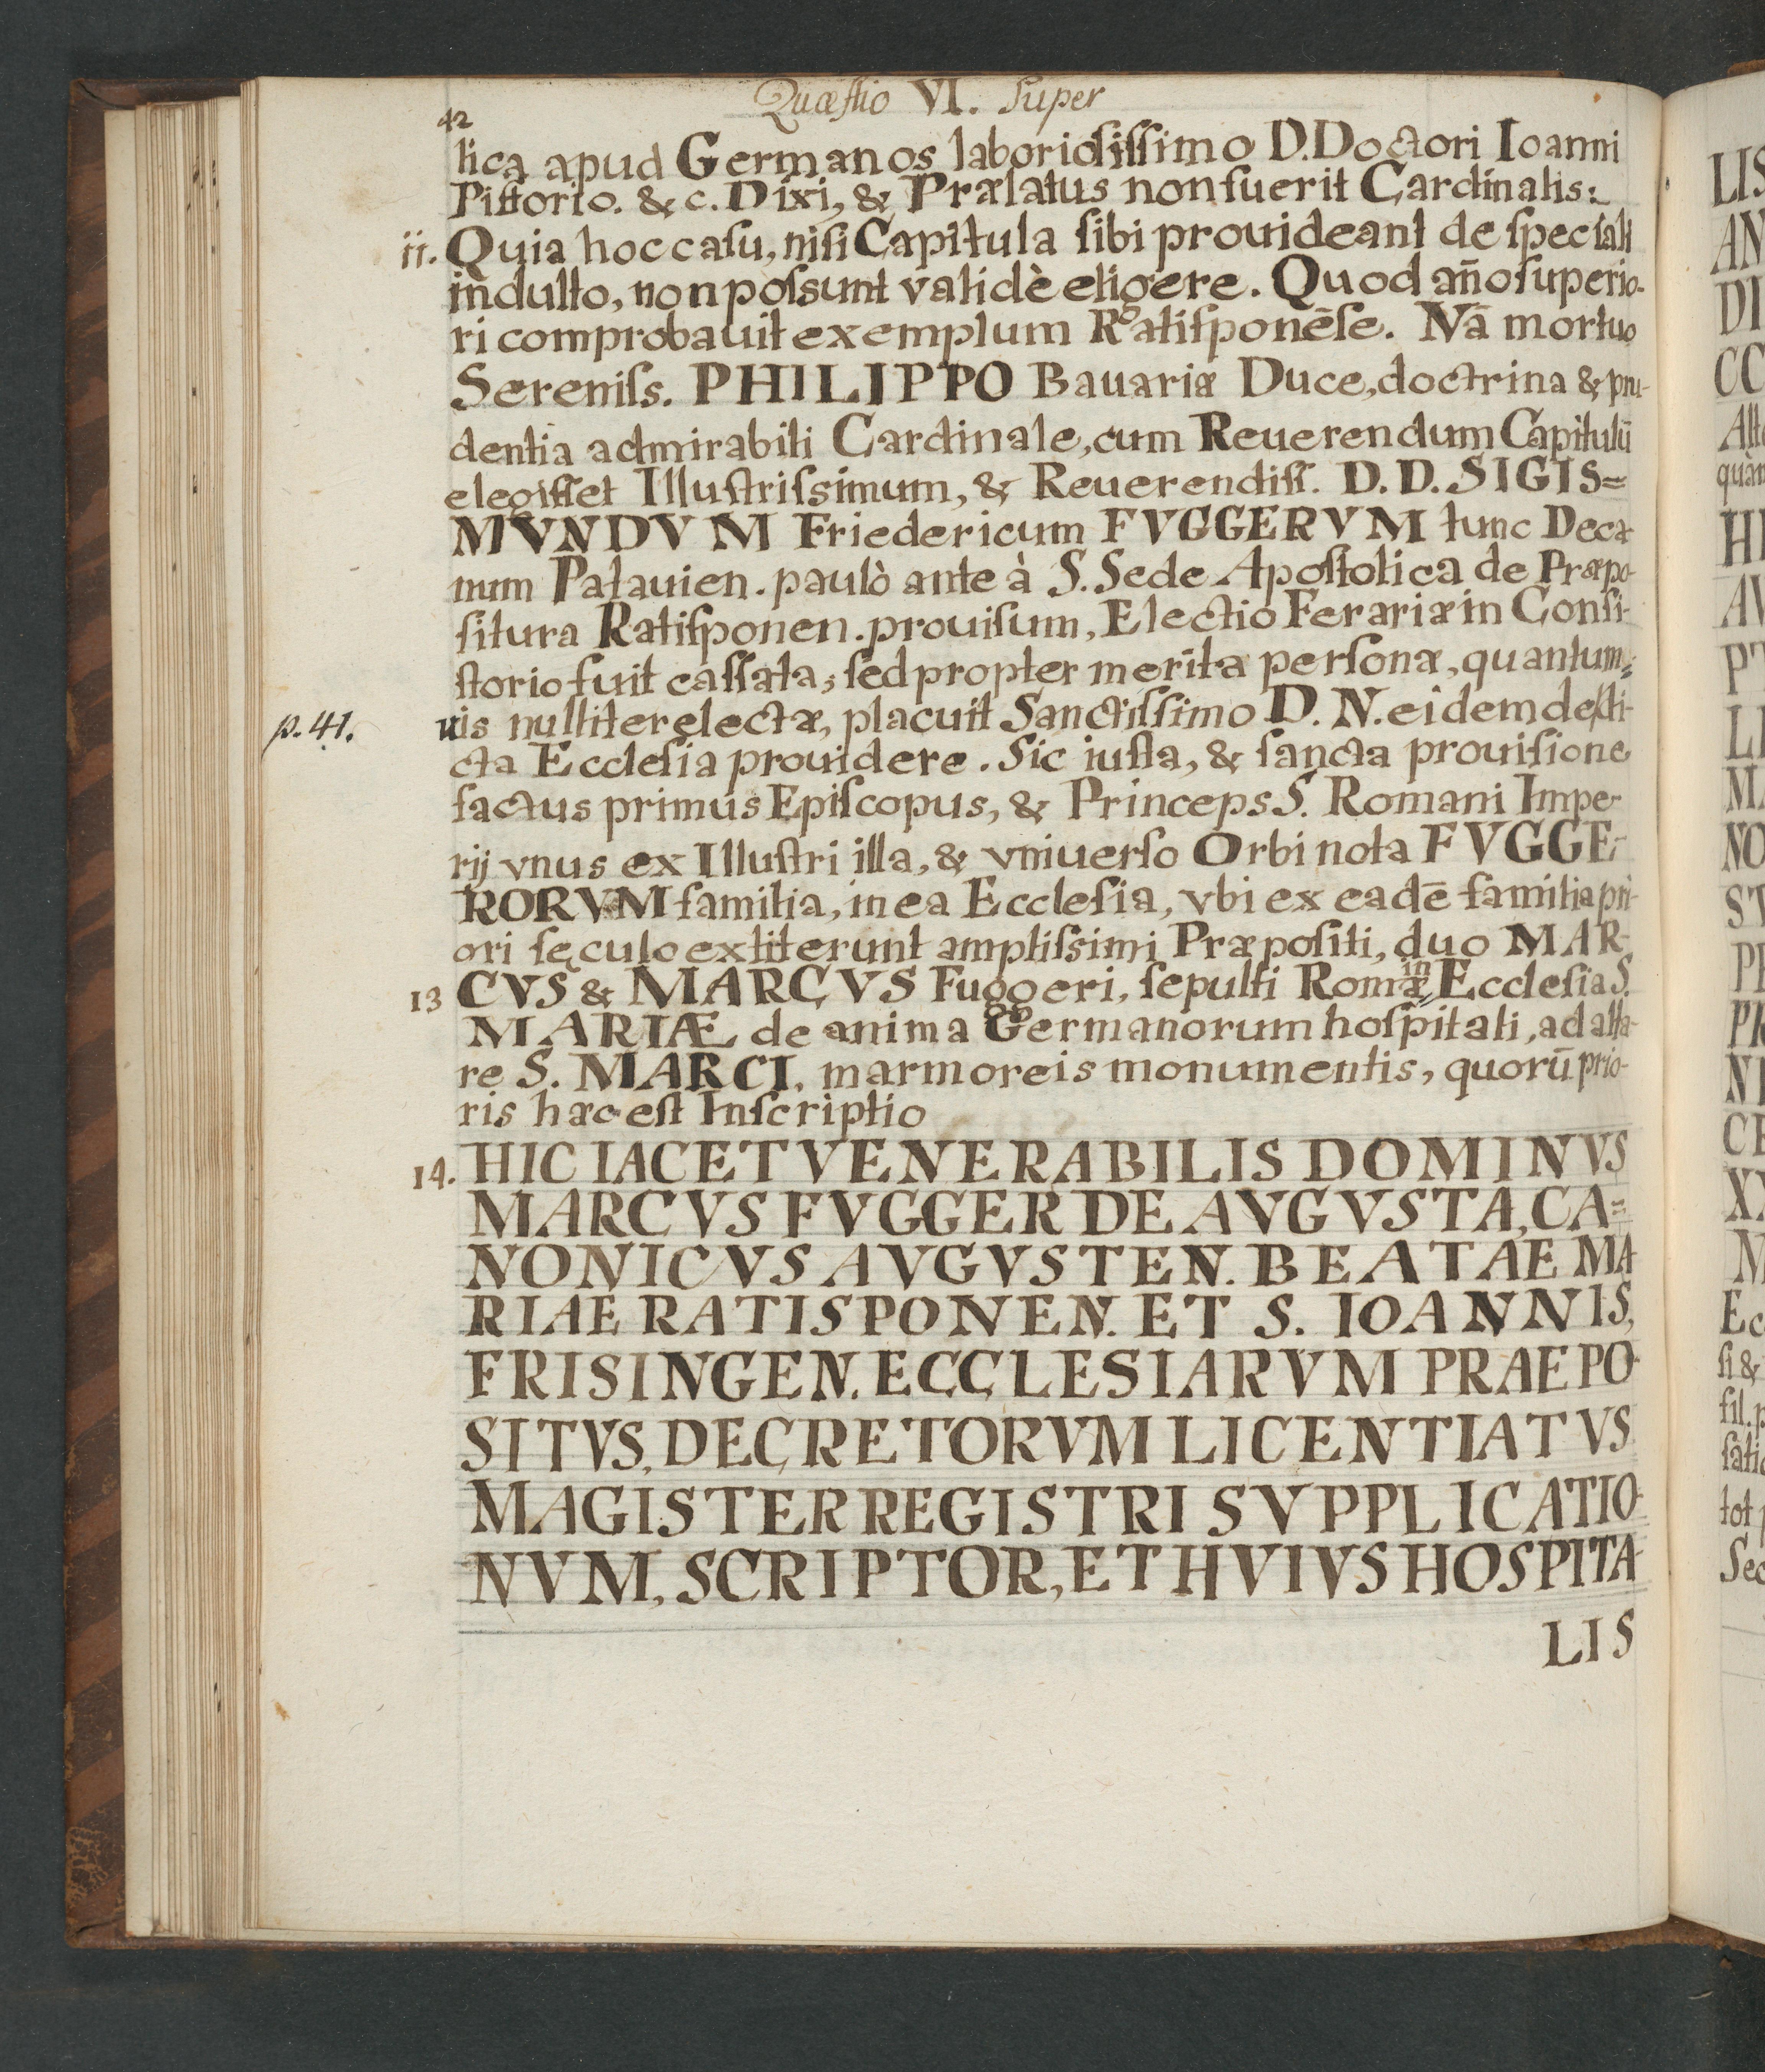 Quæſtio VI. ſuper
42
lica apud Germanos laborioſiſſimo D. Doctori Ioanni
Piſtorio. & c. Dixi, & Prælatus non fuerit Cardinalis:
ii. Quia hoc caſu, niſi Capitula ſibi prouideant de ſpeciali
indulto, non poſsunt validè eligere. Quod año ſuperio-
ri comprobauit exemplum Ratiſponēſe. Nā mortuo
Sereniſs. PHILIPPO Bauariæ Duce, doctrina & pru-
dentia admirabili Cardinale, cum Reuerendum Capitulū
elegiſſet Illuſtriſsimum, & Reuerendiſſ. D. D. SIGIS=
MVNDVM Friedericum FVGGERVM tunc Deca-
num Patauien. paulò ante à S. Sede Apoſtolica de Præpo-
ſitura Ratiſponen. prouiſum, Electio Ferariæ in Conſi-
ſtorio fuit caſſata; ſed propter merita perſonæ, quantum=
p. 41. uis nulliter electæ, placuit Sanctiſſimo D. N. eidem de
cta Eccleſia prouidere. Sic iuſta, & ſancta prouiſione
factus primus Epiſcopus, & Princeps S. Romani Impe-
rij vnus ex Illuſtri illa, & vniuerſo Orbi nota FVGGE-
RORVM familia, in ea Eccleſia, vbi ex eadē familia pri-
ori ſęculo extiterunt ampliſsimi Præpoſiti, duo MAR-
13 CVS & MARCVS Fuggeri, ſepulti Romæ in Eccleſia S.
MARIÆ de anima Germanorum hoſpitali, ad alta-
re S. MARCI, marmoreis monumentis, quorū prio-
ris hæc eſt Inſcriptio
14. HIC IACET VENERABILIS DOMINVS
MARCVS FVGGER DE AVGVSTA, CA=
NONICVS AVGVSTEN. BEATAE MA-
RIAE RATISPONEN. ET S. IOANNIS,
FRISINGEN. ECCLESIARVM PRAEPO-
SITVS, DECRETORVM LICENTIATVS
MAGISTER REGISTRI SVPPLICATIO-
NVM, SCRIPTOR, ET HVIVS HOSPITA-
LIS